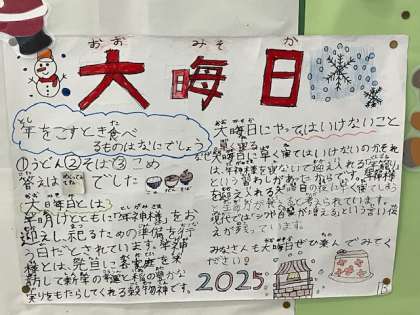 おお みそ か
大晦日
年をこすとき食べ
るものはなにでしょう
①うどん②そば③こめ
答えは めくってね でした
大晦日とは
年明けとともに「年神様」をお
迎えし、祀るための準備を行
う日だとされています。年神
様とは、元旦に各家庭を来
訪して新年の
実りをもたらしてくれる穀物神です。
大晦日にやってはいけないこと
早く寝る
なぜ大晦日に早く寝てはいけないのかそれ
は、年神様を寝ないで迎える
という習わしがあったからです。
大晦日の夜に早く寝てしまう
と考えられています。
現代では「シワや白髪が増える」という言い伝
えが
みなさんも大晦日ぜひ楽んでみてく
ださい!
2025